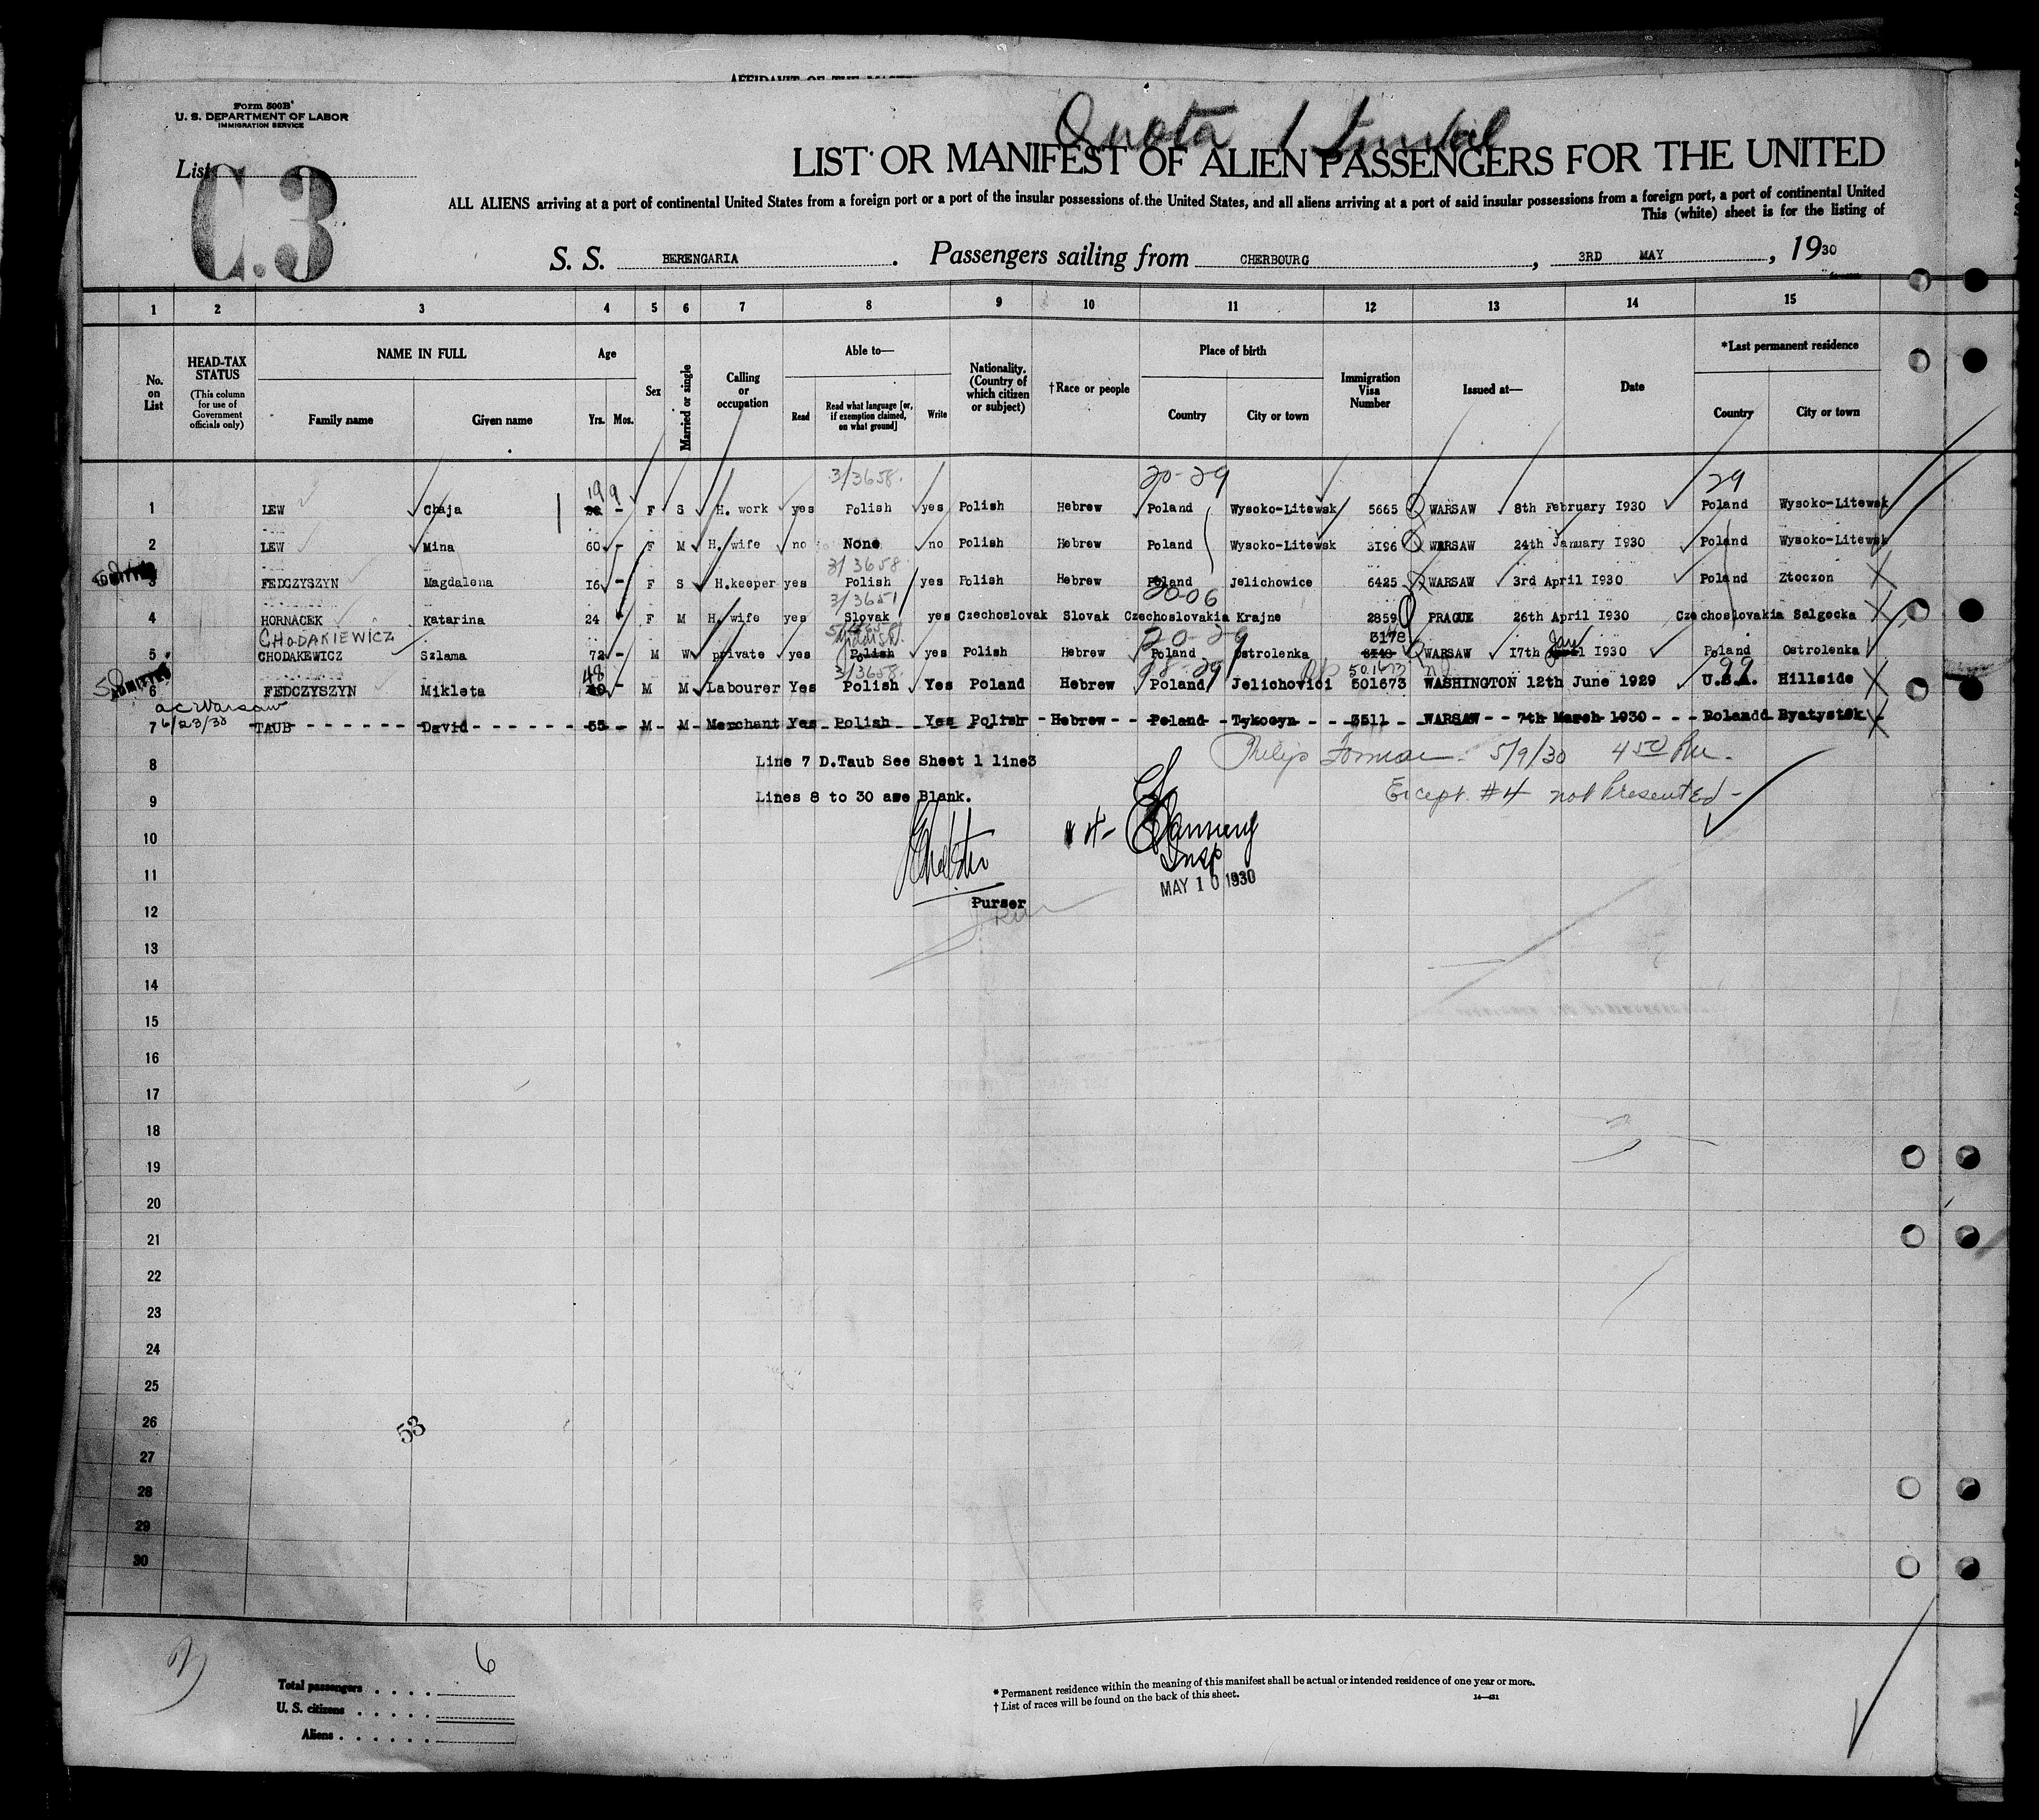 AFFIDAVIT OF THE MASTER
Form 500B
U. S. DEPARTMENT OF LABOR
IMMIGRATION SERVICE
Quota
List
C.3
LIST OR MANIFEST OF ALIEN PASSENGERS FOR THE UNITED
ALL ALIENS arriving at a port of continental United States from a foreign port or a port of the insular possessions of the United States, and all aliens arriving at a port of said insular possessions from a foreign port, a port of continental United
This (white) sheet is for the listing of
S. S. BERENGARIA. Passengers sailing from CHERBOURG, 3RD MAY, 1930
1 2 3 4 5 6 7 8 9 10 11 12 13 14 15
No. on List
HEAD-TAX STATUS (This column for use of Government officials only)
NAME IN FULL Family name Given name
Age Yrs. Mos.
Sex
Married or single
Calling or occupation
Able to— Read Read what language [or, if exemption claimed, on what ground] Write
Nationality. (Country of which citizen or subject)
†Race or people
Place of birth Country City or town
Immigration Visa Number
Issued at—
Date
*Last permanent residence Country City or town
19 9 3/3658. 20-29 29
1 LEW Chaja - F S H. work yes Polish yes Polish Hebrew Poland Wysoko-Litewsk 5665 WARSAW 8th February 1930 Poland Wysoko-Litewsk
2 LEW Mina 60 - F M H. wife no None no Polish Hebrew Poland Wysoko-Litewsk 3196 WARSAW 24th January 1930 Poland Wysoko-Litewsk
3/3658
3 FEDCZYSZYN Magdalena 16 - F S H.keeper yes Polish yes Polish Hebrew Poland Jelichowice 6425 WARSAW 3rd April 1930 Poland Ztoczon
3/3651 20-06
4 HORNACEK Katarina 24 F M H. wife yes Slovak yes Czechoslovak Slovak Czechoslovakia Krajne 2859 PRAGUE 26th April 1930 Czechoslovakia Salgocka
CHODAKIEWICZ Yiddish. 20-29 3178 Jan
5 CHODAKEWICZ Szlama 72 - M W private yes Polish yes Polish Hebrew Poland Ostrolenka WARSAW 17th 1930 Poland Ostrolenka
ADMITTED 48 3/3658. 501673 99
6 FEDCZYSZYN Mikleta 40 - M M Labourer Yes Polish Yes Poland Hebrew Poland Jelichovici 501673 WASHINGTON 12th June 1929 U.S.A. Hillside
ac Warsaw
6/23/30
7 TAUB David 55 - M M Merchant Yes Polish Yes Polish Hebrew Poland Tykocyn 3511 WARSAW 7th March 1930 Bolandd Byatystok
8 Line 7 D.Taub See Sheet 1 line3
Philip Forman 5/9/30 4 50 PM.
9 Lines 8 to 30 are Blank.
Except #4 not Presented -
10
11 Insp
MAY 10 1930
12 Purser
13
14
15
16
17
18
19
20
21
22
23
24
25
26
53
27
28
29
30
Total passengers . . . . 6
U. S. citizens . . . . .
Aliens . . . . . .
* Permanent residence within the meaning of this manifest shall be actual or intended residence of one year or more.
† List of races will be found on the back of this sheet.
14—431